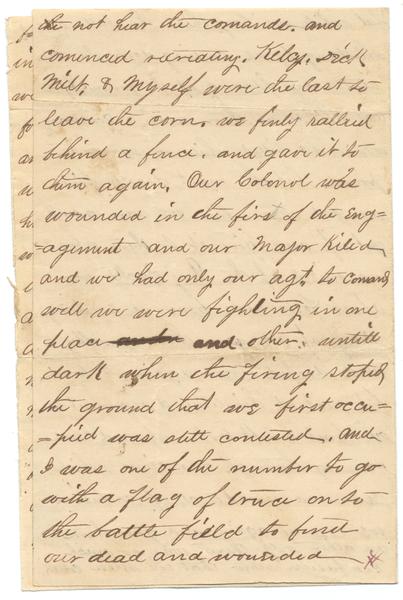 not hear the comands. and
comenced retreating. Kelcy. Dick
Milt. & Myself were the last to
leave the corn. we finly rallied
behind a fence. and gave it to
them again. Our Colonol was
wounded in the first of the Eng-
=agement and our Major Kiled
and we had only our agt. to comand
well we were fighting in one
place and other. untill
dark when the firing stoped
the ground that we first occu-
=pied was still contested. and
I was one of the number to go
with a flag of truce on to
the battle field to find
our dead and wounded